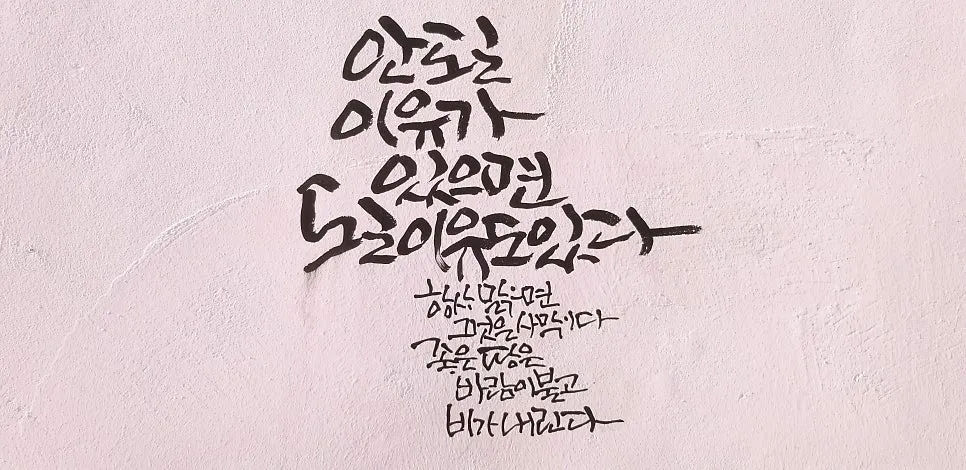 안 도는
이유가
있으면
도는 이유도 있다
항상 맑으면
그것은 사막이다
좋은 땅은
바람이 불고
비가 내린다